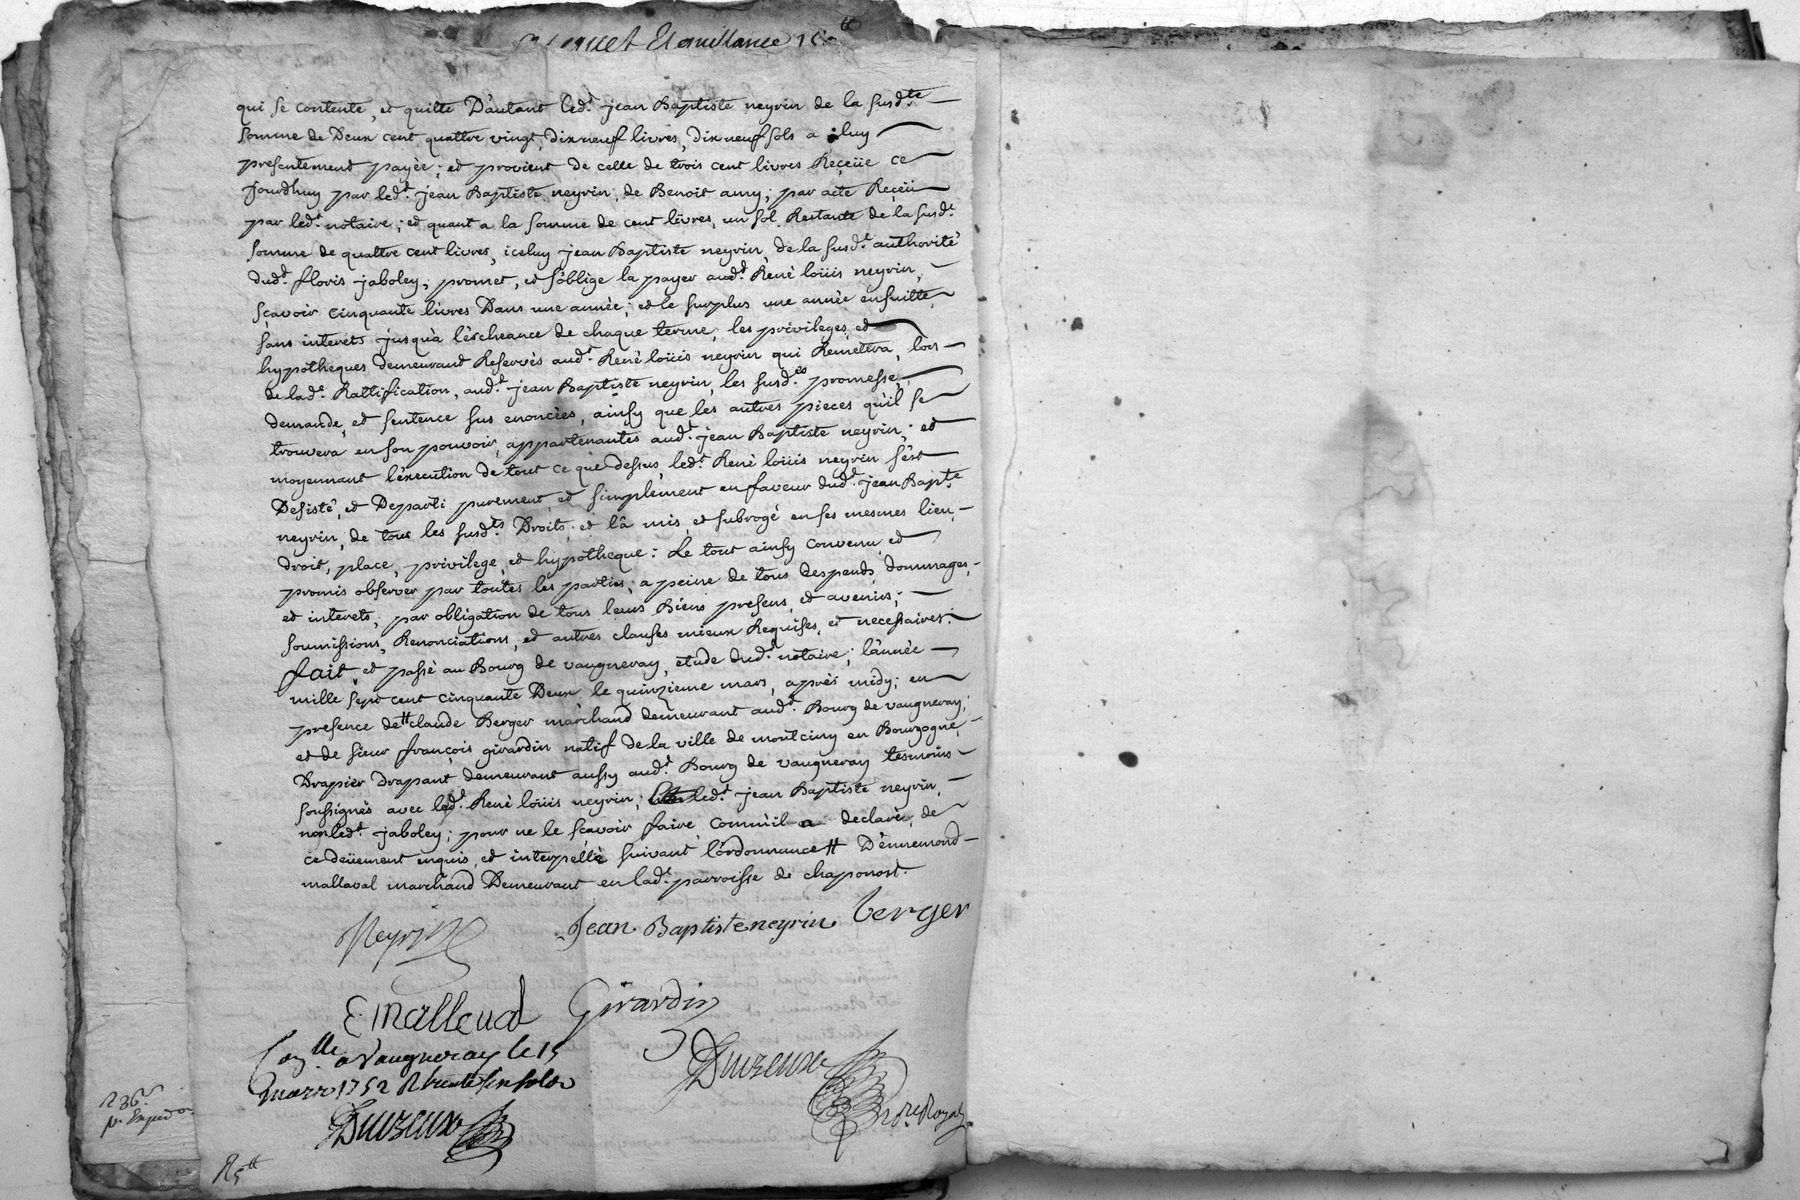 et quittance
qui se contente, et quitte D'autant led.t jean Baptiste neyrin de la susd.te
somme de Deux cent quattre vingt, dix neuf livres, dix neuf sols a luy
presentement payée; et provient de celle de trois cent livres Reçeüe ce
jourdhuy par led.t jean Baptiste neyrin, de Benoit amy; par acte Reçeü
par led.t notaire; et quant a la somme de cent livres, un sol Restante de la susd.e
somme de quattre cent livres, iceluy jean Baptiste neyrin, de la susd.e authorité
dud.t floris jaboley, promet, et s'oblige la payer aud.t René loüis neyrin,
sçavoir cinquante livres Dans une année; et le surplus une année ensuitte,
sans interéts jusqu'à l'écheance de chaque terme; les privileges, et
hypotheques demeurant Reservés aud.t René loüis neyrin qui Remettra, lors
de lad.e Rattification, aud.t jean Baptiste neyrin, les susd.es promesse,
demande, et sentence sus enoncées, ainsy que les autres pieces qu'il se
trouvera en son pouvoir, appartenantes aud.t jean Baptiste neyrin; et
moyennant l'éxecution de tout ce que dessus, led.t René loüis neyrin s'ést
Desisté, et Departi purement, et simplement en faveur dud.t jean Bap.te
neyrin, de tous les susd.ts Droits; et l'à mis, et subrogé en ses mesmes lieu,
droit, place, privilege, et hypotheque: Le tout ainsy convenu, et
promis observer par toutes les parties; a peine de tous despends, dommages,
et interets, par obligation de tous leurs Biens presens, et avenirs;
soumissions, Renonciations, et autres clauses mieux Requises, et necessaires.
fait, et passé au Bourg de vaugneray, etude dud.t notaire; l'année
mille sept cent cinquante Deux le quinzieme mars, après midy; en
presence de claude Berger marchand demeurant aud.t Bourg de vaugneray;
et de sieur françois girardin natif de la ville de montciny en Bourgogne,
Drapier drapant demeurant aussy aud.t Bourg de vaugneray tesmoins
soussignés avec led.t René loüis neyrin; led.t jean Baptiste neyrin,
non led.t jaboley; pour ne le sçavoir faire comm'il a declaré, de
ce deüement enquis, et interpellé suivant l'ordonnance # D'ennemond
mallaval marchand Demeurant en lad.e parroisse de chaponost.
Neyrin Jean Baptiste neyrin berger
E mallaval Girardin
Con.lle a Vaugneray le 15
mars 1752 R trente six sols
Duizeux
Duizeux no.re Royal